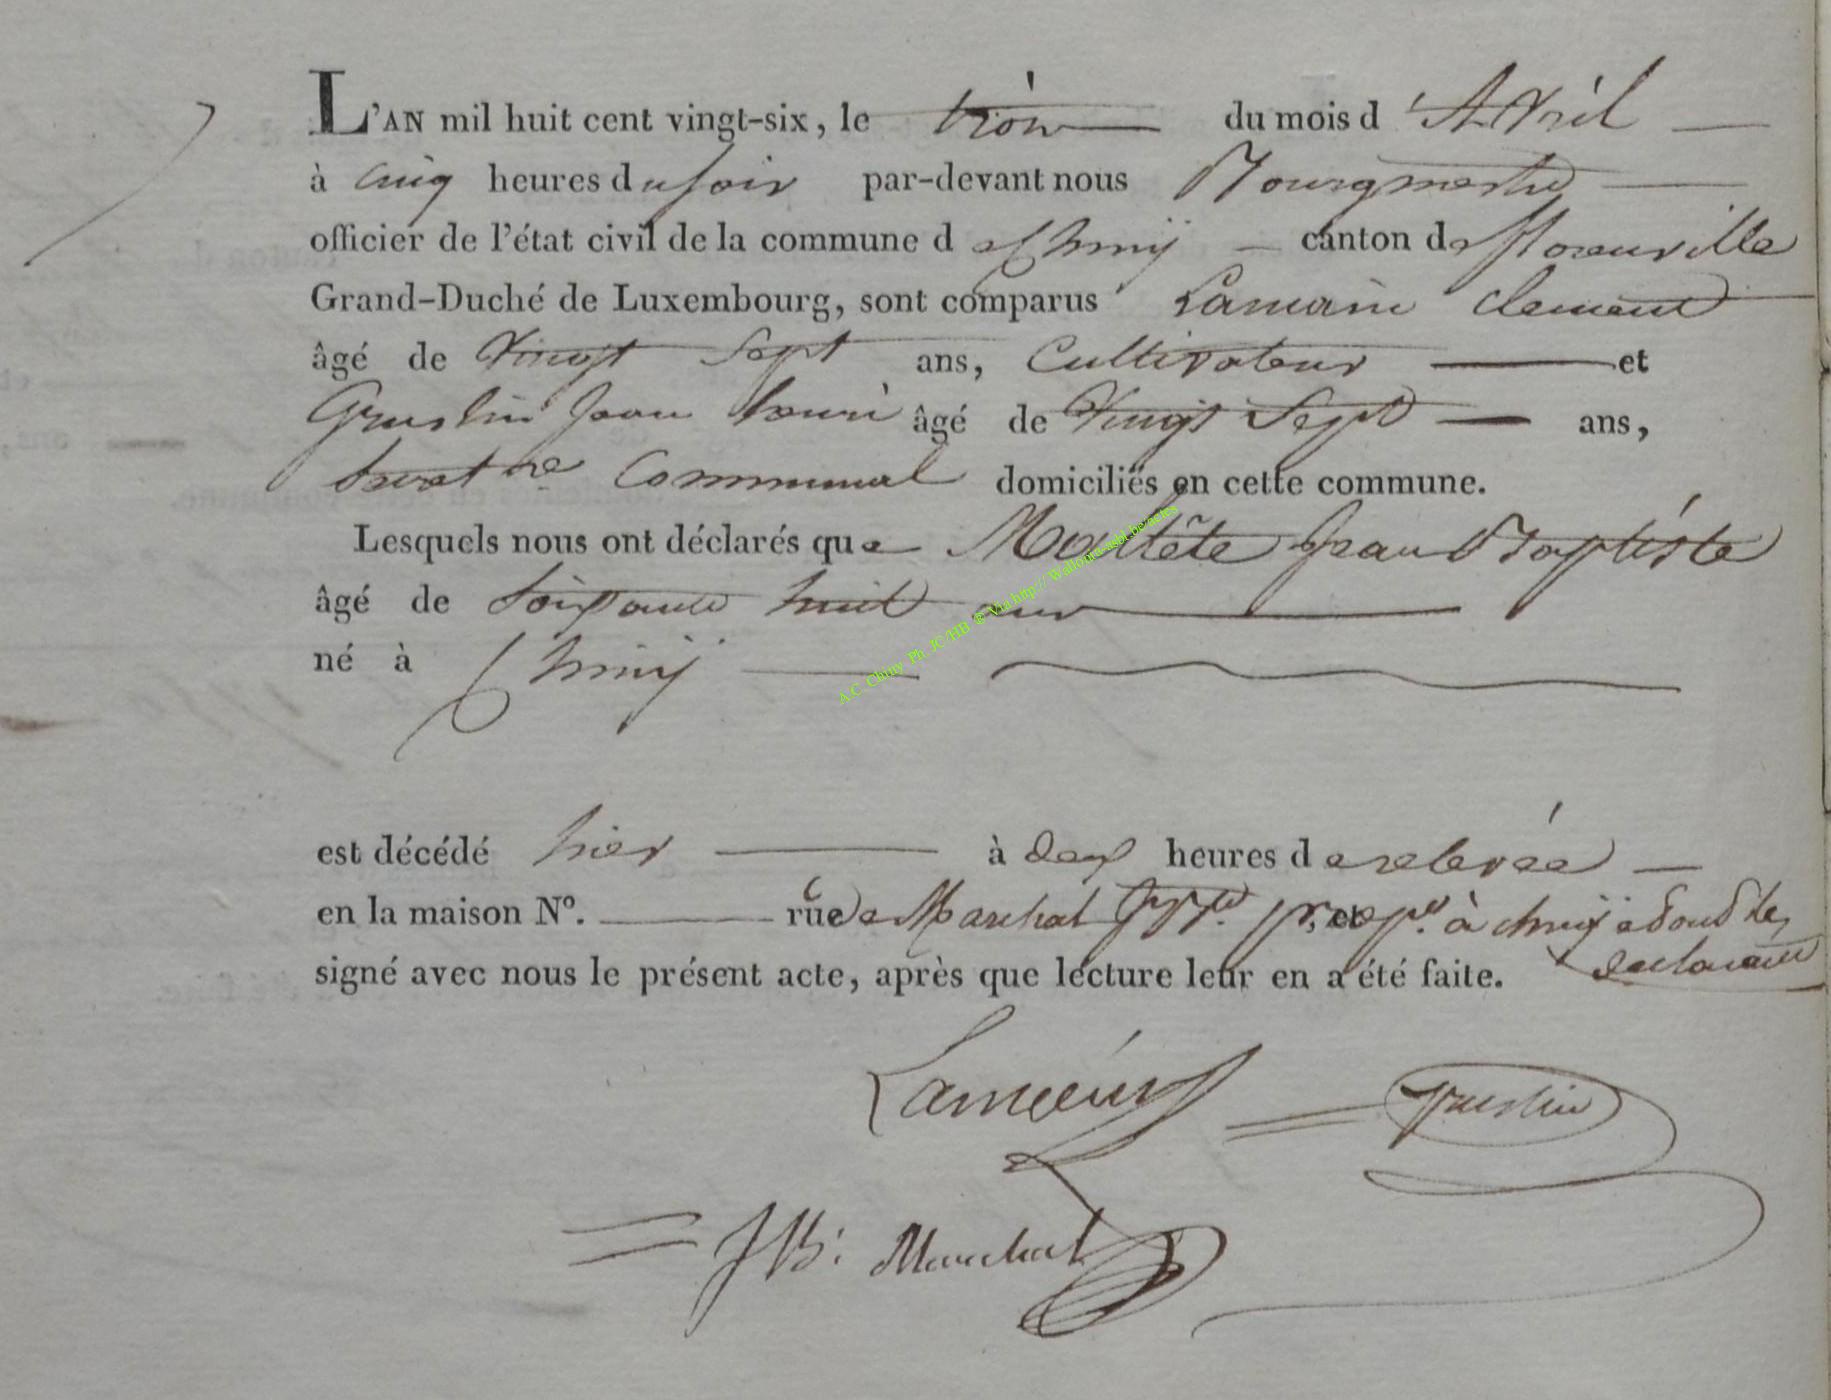 L'AN mil huit cent vingt-six, le trois du mois d'Avril
à cinq heures du soir par-devant nous Bourgmestre
officier de l'état civil de la commune de Chiny canton de florenville
Grand-Duché de Luxembourg, sont comparus Lamain Clement
âgé de Vingt Sept ans, Cultivateur et
Gruslin Jean henri âgé de Vingt Sept ans,
communal domiciliés en cette commune.
Lesquels nous ont déclarés que Jean Baptiste
âgé de Soixante huit ans
né à Chiny
est décédé hier à deux heures de relevée
en la maison N°. rue de Marchal , et à chiny
signé avec nous le présent acte, après que lecture leur en a été faite.
déclarants
Gruslin
JB: Marchal
A.C. Chiny Ph. JC/HB © Via http://Wallonia-asbl.be/actes